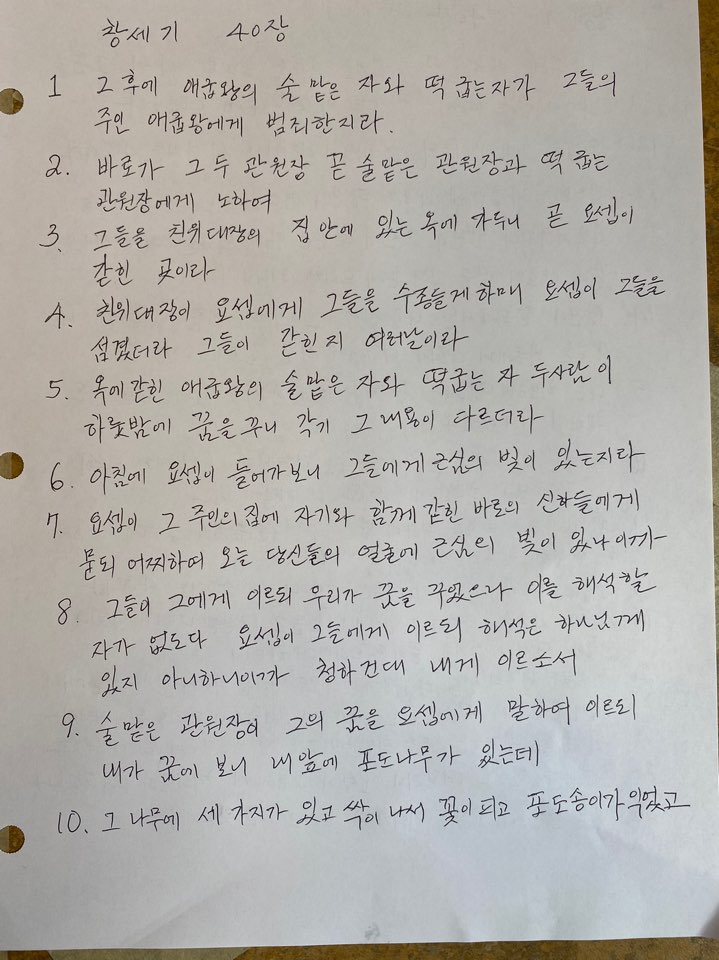 창세기 40장
1 그 후에 애굽왕의 술 맡은 자와 떡 굽는자가 그들의
주인 애굽왕에게 범죄한지라.
2. 바로가 그 두 관원장 곧 술맡은 관원장과 떡 굽는
관원장에게 노하여
3. 그들을 친위대장의 집 안에 있는 옥에 가두니 곧 요셉이
갇힌 곳이라
4. 친위대장이 요셉에게 그들을 수종들게하매 요셉이 그들을
섬겼더라 그들이 갇힌지 여러날이라
5. 옥에갇힌 애굽왕의 술맡은 자와 떡굽는 자 두사람이
하룻밤에 꿈을꾸니 각기 그 내용이 다르더라
6. 아침에 요셉이 들어가보니 그들에게 근심의 빛이 있는지라
7. 요셉이 그 주인의 집에 자기와 함께 갇힌 바로의 신하들에게
묻되 어찌하여 오늘 당신들의 얼굴에 근심의 빛이 있나이까
8. 그들이 그에게 이르되 우리가 꿈을 꾸었으나 이를 해석할
자가 없도다 요셉이 그들에게 이르되 해석은 하나님께
있지 아니하니이까 청하건대 내게 이르소서
9. 술 맡은 관원장이 그의 꿈을 요셉에게 말하여 이르되
내가 꿈에 보니 내 앞에 포도나무가 있는데
10. 그 나무에 세 가지가 있고 싹이 나서 꽃이 피고 포도송이가 익었고